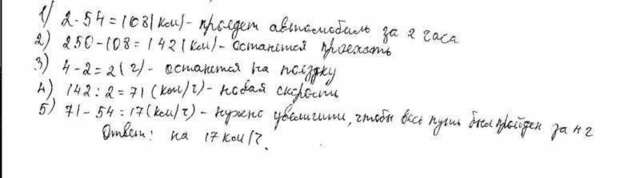 1) 2·54=108(км)- пройдет автомобиль за 2 часа
2) 250-108=142(км)- останется проехать
3) 4-2=2(г)- останется на поездку
4) 142:2=71(км/ч)- новая скорость
5) 71-54=17(км/ч)- нужно увеличить, чтобы весь путь был пройден за 4 г
Ответ: на 17 км/г.